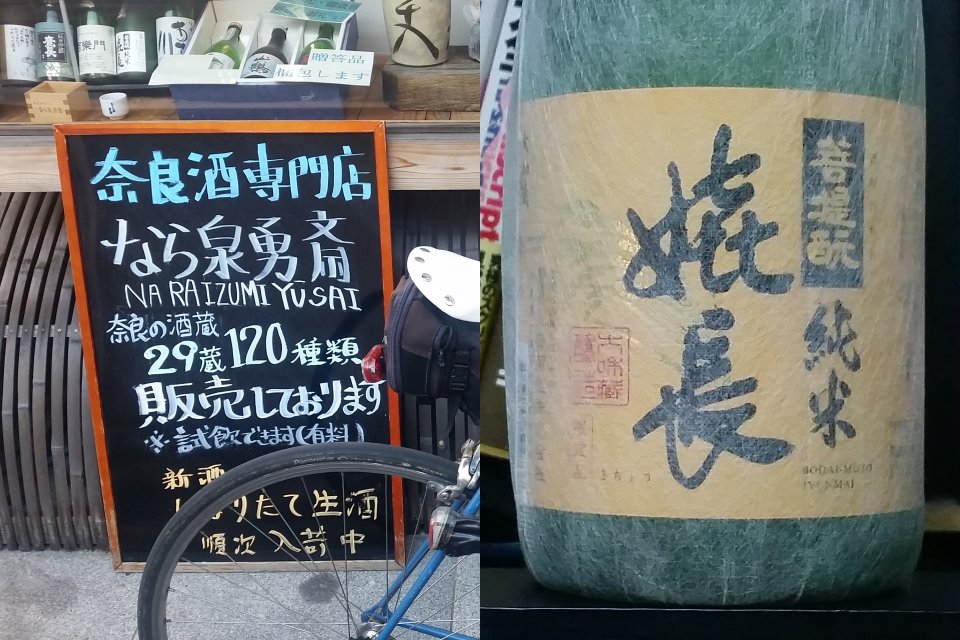 贈答品
梱包します
奈良酒専門店
なら泉勇斎
NARAIZUMI YUSAI
奈良の酒蔵
29蔵120種類
販売しております
※試飲できます(有料)
新酒
しぼりたて生酒
順次入荷中
菩提酛
純米
嬉長
BODAI-MOTO
JYUNMAI